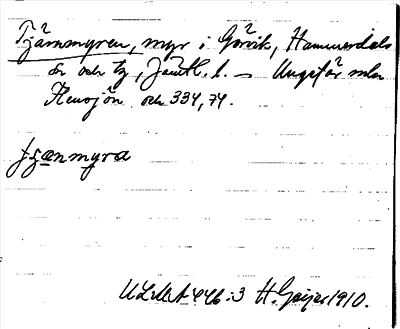 Tjärnmyren, myr i Görvik, Hammerdals
sn och tg, Jämtl. l. — Ungefär mln
Kensjön och 334,74.
tjænmyra
ULMA 446:3 H. Geijer 1910.